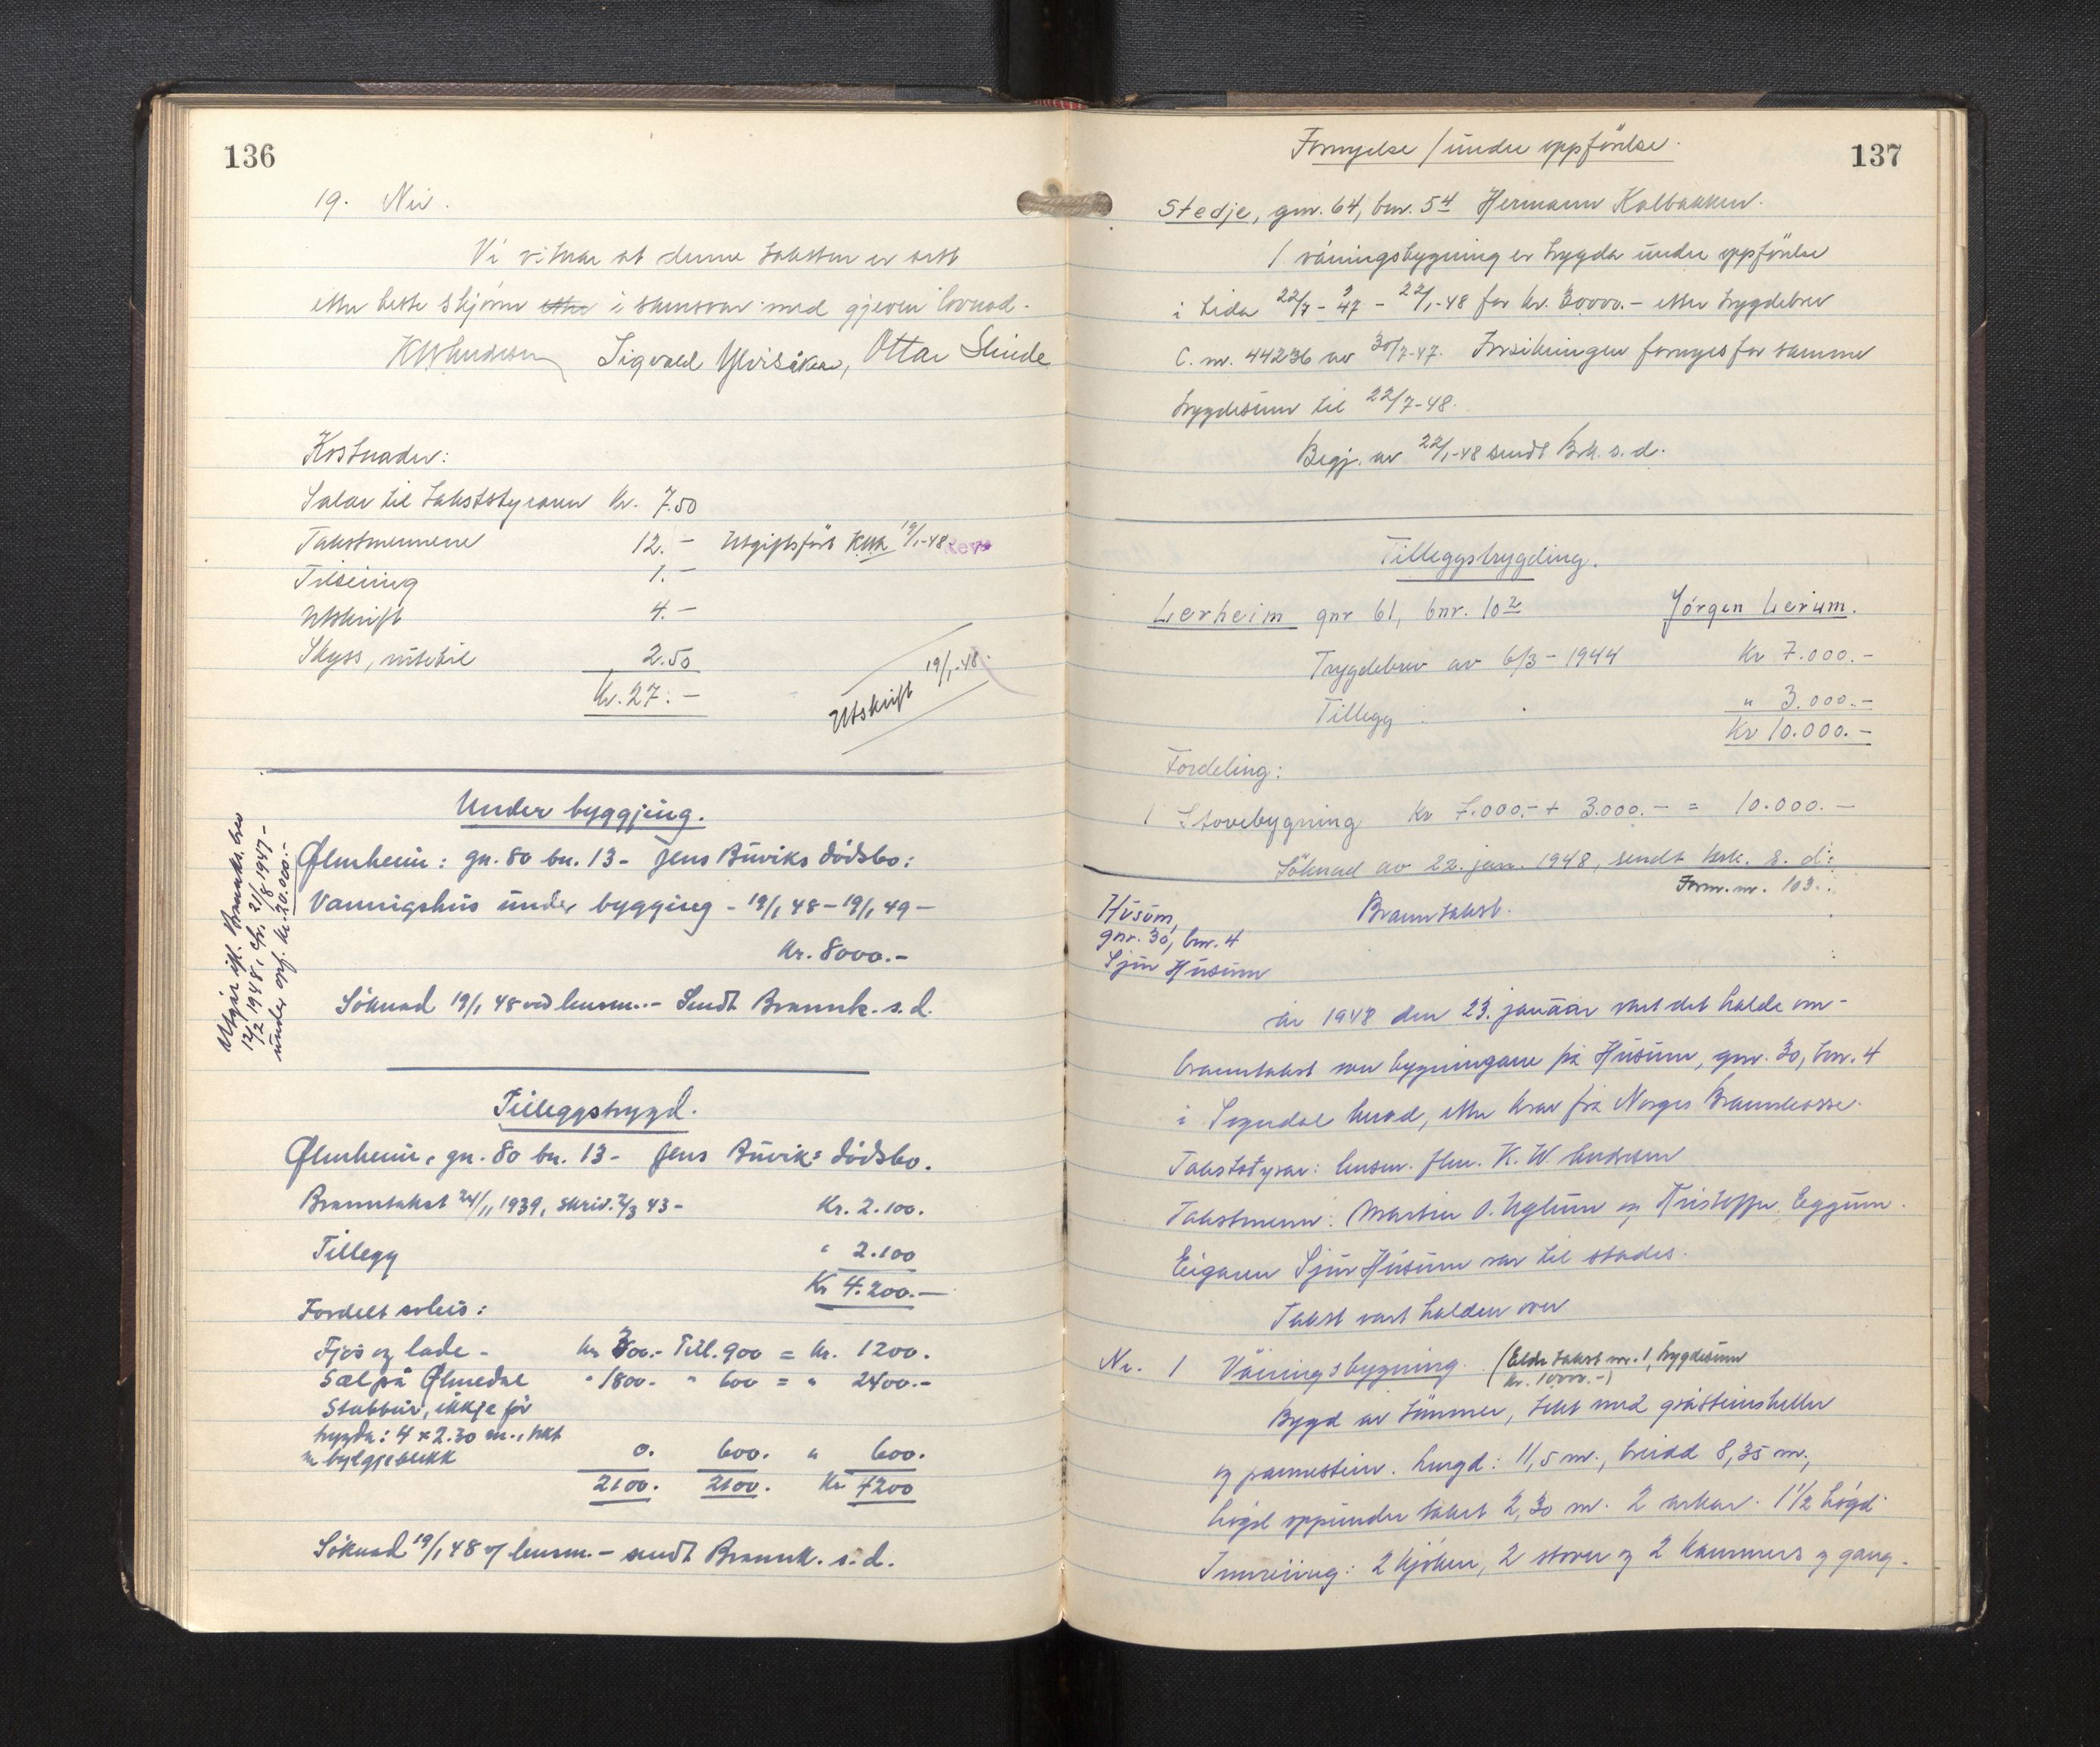 136
19. Niv.
Vi vitnar at denne taksten er sett
etter beste skjønn etter i samsvar med gjeven lovnad.
KWAndersen Sigvald Ylvisåker, Ottar Slinde
Kostnader:
Salar til takststyraren kr. 7.50
Takstmennene 12.- Utgiftsført KWA 19/1-48 Rev
Tilseiing 1.-
Utskrift 4.-
Skyss, nistetil 2.50
Kr. 27.-
Utskrift 19/1-48.
Under byggjing.
Ølmheim: gn. 80 bn. 13- Jens Buviks dødsbo:
Vaningshus under bygging - 19/1 48 - 19/1 49 -
Kr. 8000.-
Søknad 19/1 48 ved lensm.- Sendt Brannk. s.d.
Utgår ifl. Brannks. brev
12/2 1948, cfr. 21/8 1947-
under opf. kr. 20.000.-
Tilleggstrygd.
Ølmheim, gn. 80 bn. 13- Jens Buviks dødsbo.
Branntakst 24/11 1939, skriv. 2/3 43- Kr. 2.100.
Tillegg " 2.100
Kr 4.200.-
Fordelt soleis:
Fjøs og lade - kr 300.- Till. 900 = kr. 1200.
Sæl på Ølmedal " 1800.- " 600 = " 2400.-
Stabbur, ikkje før
trygda: 4 x 2.30 m., tekt
m bylgjeblikk 0. 600. " 600.
2100. 2100. Kr 4200
Søknad 19/1 48 v/ lensm.- sendt Brannk. s.d.
137
Fornyelse / under oppførelse.
Stedje, gnr. 64, bnr. 54 Hermann Kalbakken.
1 våningsbygning er trygda under oppførelse
i tida 22/7-47 - 22/1-48 for kr. 30000.- etter trygdebrev
C. nr. 44236 av 30/7-47. Forsikringen fornyes for samme
trygdesum til 22/7-48.
Begj. av 22/1-48 sendt Brk. s.d.
Tilleggstrygding.
Lerheim gnr 61, bnr. 102 Jørgen Lerum.
Trygdebrev av 6/3 - 1944 Kr 7.000.-
Tillegg " 3.000.-
Kr 10.000.-
Fordeling:
1 Stovebygning Kr 7.000.- + 3.000.- = 10.000.-
Søknad av 22. jan. 1948, sendt brk. s. d:
Form. nr. 103.
Husum,
gnr. 30, bnr. 4
Sjur Husum
Branntakst.
År 1948 den 23. januar vart det halde om-
branntakst over bygningane på Husum, gnr. 30, bnr. 4
i Sogndal herad, etter krav frå Norges Brannkasse.
Takststyrar: lensm. flm. K. W. Andersen
Takstmenn: Martin O. Uglum og Kristoffer Eggum.
Eigaren Sjur Husum var til stades.
Takst vart halden over
Nr. 1 Våningsbygning. (Eldre takst nr. 1, trygdesum
kr. 10000.-)
Bygd av tømmer, tekt med gråsteinsheller
og pannestein. Lengd: 11,5 m., breidd 8,35 m.,
høgd oppunder taket 2,30 m. 2 arkar. 1 1/2 høgd.
Innreiing: 2 kjøken, 2 stover og 2 kammers og gang.